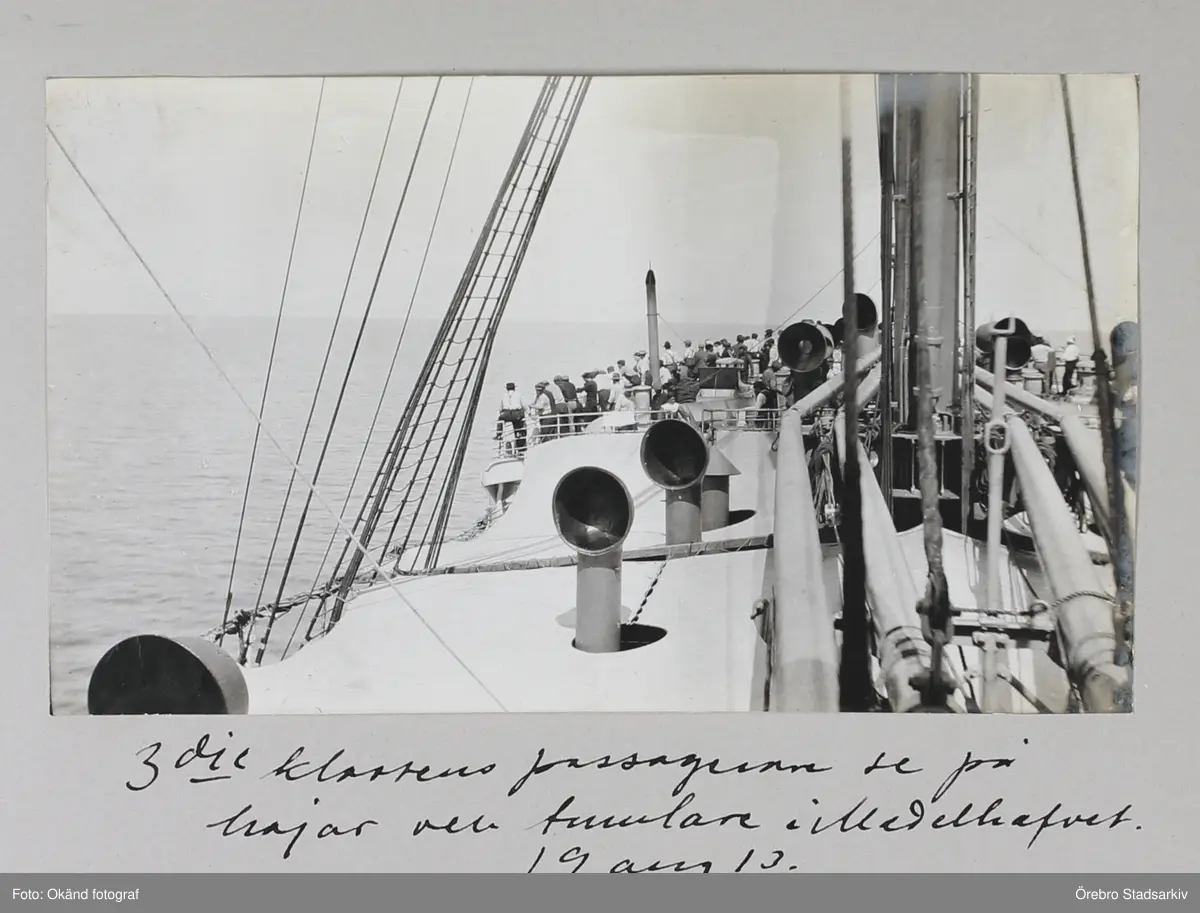 3die klassens passagerare se på
hajar och tumlare i Medelhafvet.
19 aug 13.
Foto: Okänd fotograf
Örebro Stadsarkiv